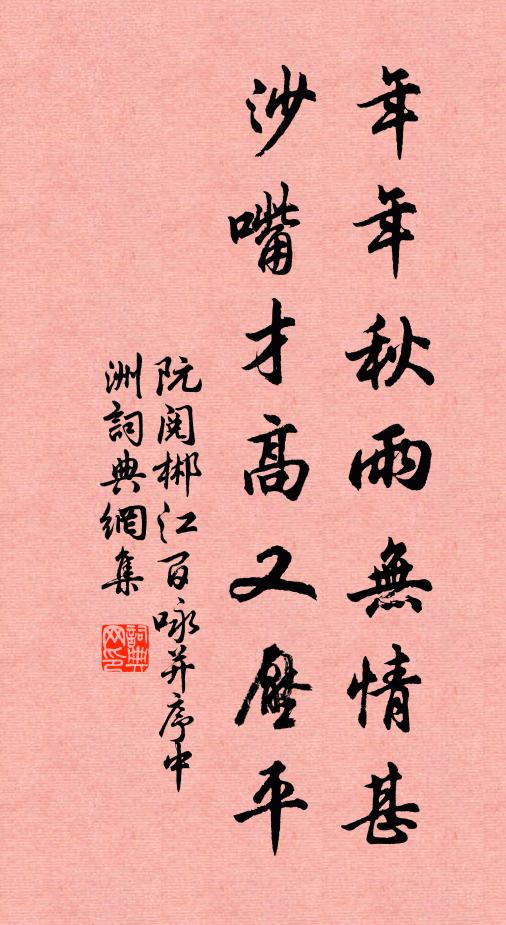 年年秋雨無情甚
沙嘴才高又壓平
阮閱郴江百咏并序中
洲詞典網集
詞典網印